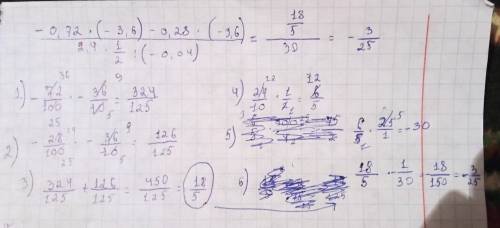 -0,72 · (-3,6) - 0,28 · (-3,6) / 2,4 · 1/2 : (-0,04) = 18/5 / 30 = - 3/25
1) - 72/100 · - 36/10 = 324/125
2) - 28/100 · - 36/10 = 126/125
3) 324/125 + 126/125 = 450/125 = 18/5
4) 24/10 · 1/2 = 6/5
5) 6/5 · 25/1 = -30
6) 18/5 · - 1/30 = 18/150 = - 3/25